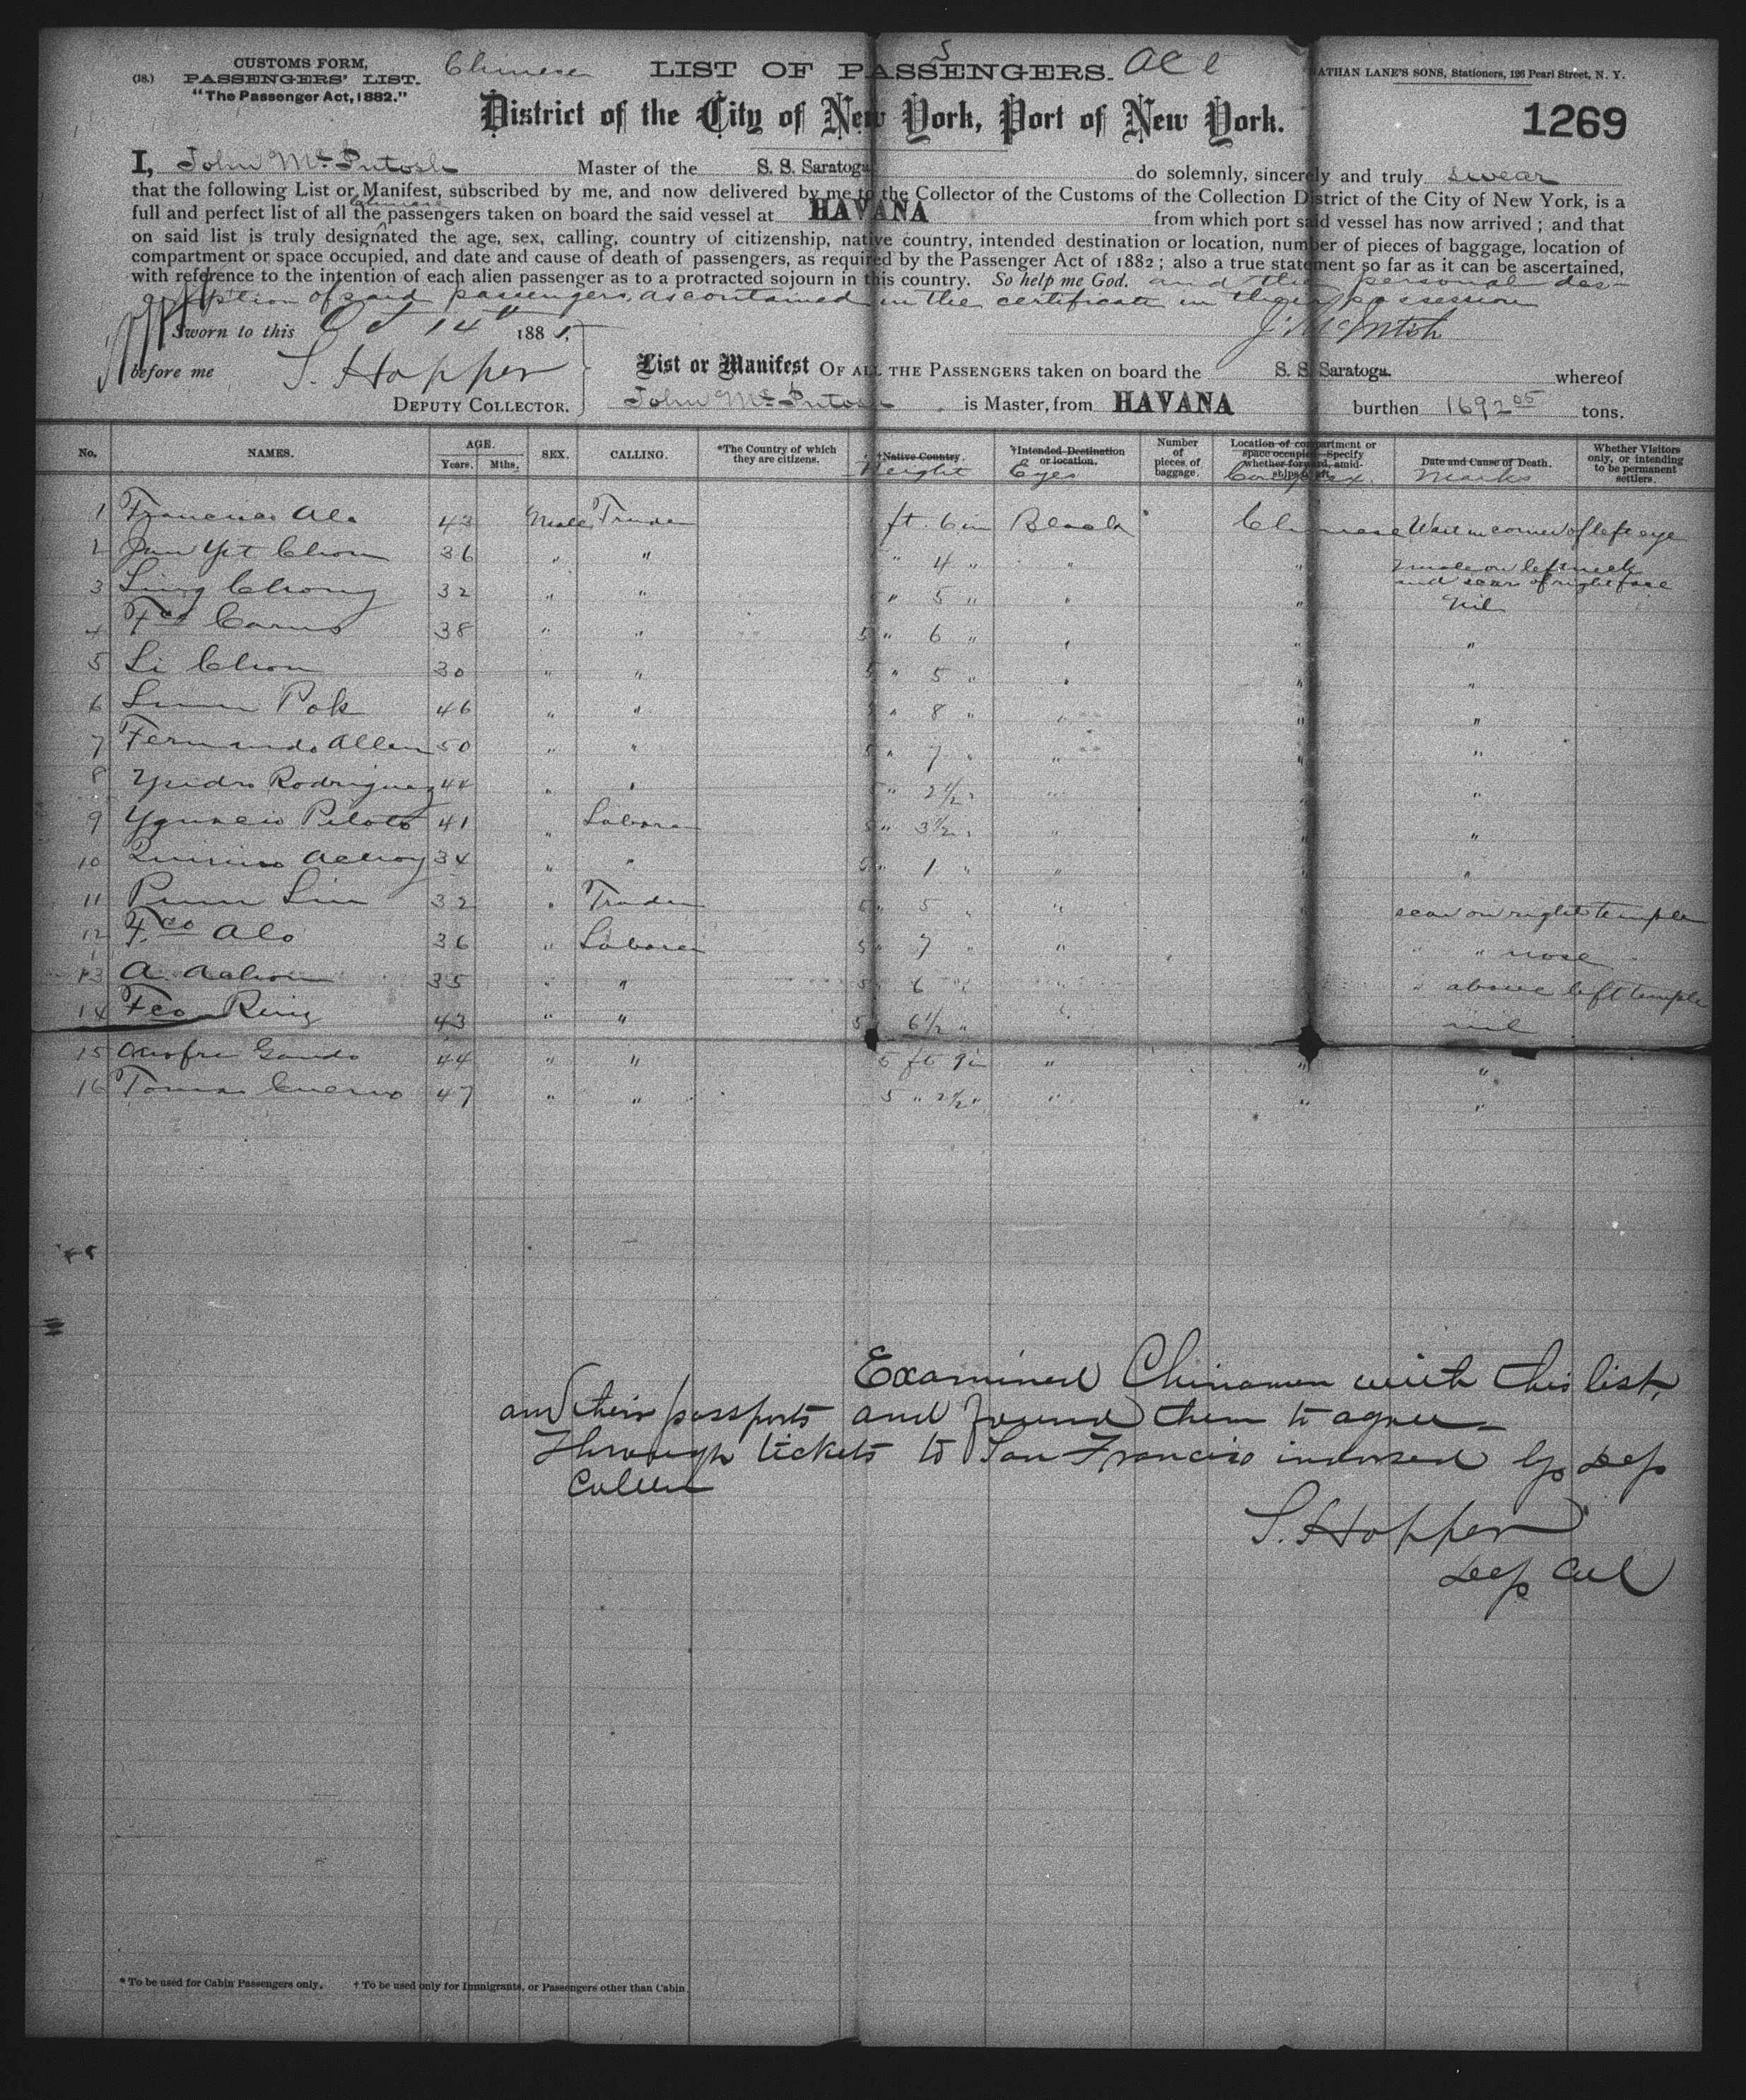 (18.)
CUSTOMS FORM,
PASSENGERS' LIST.
"The Passenger Act, 1882."
Chinese LIST OF PASSENGERS.
NATHAN LANE'S SONS, Stationers, 126 Pearl Street, N. Y.
District of the City of New York, Port of New York.
1269
I, John McIntosh Master of the S. S. Saratoga do solemnly, sincerely and truly swear
that the following List or Manifest, subscribed by me, and now delivered by me to the Collector of the Customs of the Collection District of the City of New York, is a
full and perfect list of all the Chinese passengers taken on board the said vessel at HAVANA from which port said vessel has now arrived ; and that
on said list is truly designated the age, sex, calling, country of citizenship, native country, intended destination or location, number of pieces of baggage, location of
compartment or space occupied, and date and cause of death of passengers, as required by the Passenger Act of 1882 ; also a true statement so far as it can be ascertained,
with reference to the intention of each alien passenger as to a protracted sojourn in this country. So help me God. and the personal des-
cription of said passengers as contained in the certificate in their possession
Sworn to this Oct 14th 188 J. McIntosh
before me S. Hopper
DEPUTY COLLECTOR.
List or Manifest OF ALL THE PASSENGERS taken on board the S. S. Saratoga. whereof
John McIntosh is Master, from HAVANA burthen 1692 05 tons.
No. NAMES. AGE. Years. Mths. SEX. CALLING. *The Country of which they are citizens. †Native Country. Height †Intended Destination or location. Eyes Number of pieces of baggage. Location of compartment or space occupied. Specify whether forward, amidships or aft. Complex Date and Cause of Death. Marks Whether Visitors only, or intending to be permanent settlers.
1 Francisco Alo 43 Male Trader ft. 6 in Black Chinese Wart in corner of left eye
2 Chon 36 " " " 4 " " " mole on left neck and scar of right face
3 Ling Chong 32 " " " 5 " " " Nil
4 Fco 38 " " 5 " 6 " " " "
5 Li Chon 30 " " 5 " 5 " " " "
6 Pok 46 " " 5 " 8 " " " "
7 Fernando Allen 50 " " 5 " 7 " " " "
8 Ysidro Rodriguez 44 " " 5 " 2 1/2 " " " "
9 Ygnacio Piloto 41 " Laborer 5 " 3 1/2 " " " "
10 Achoy 34 " " 5 " 1 " " " "
11 Lin 32 " Trader 5 " 5 " " scar on right temple
12 Fco Alo 36 " Laborer 5 " 7 " " " " nose
13 A. Achon 35 " " 5 " 6 " " " above left temple
14 Fco 43 " " 5 6 1/2 " " nil
15 Onofre 44 " " 5 ft 9 in " " "
16 Tomas Cuervo 47 " " 5 " 2 1/2 " " " "
Examined Chinamen with this list,
and their passports and found them to agree
Through tickets to San Francisco indorsed by Dep
S. Hopper
Dep Col
* To be used for Cabin Passengers only. † To be used only for Immigrants, or Passengers other than Cabin